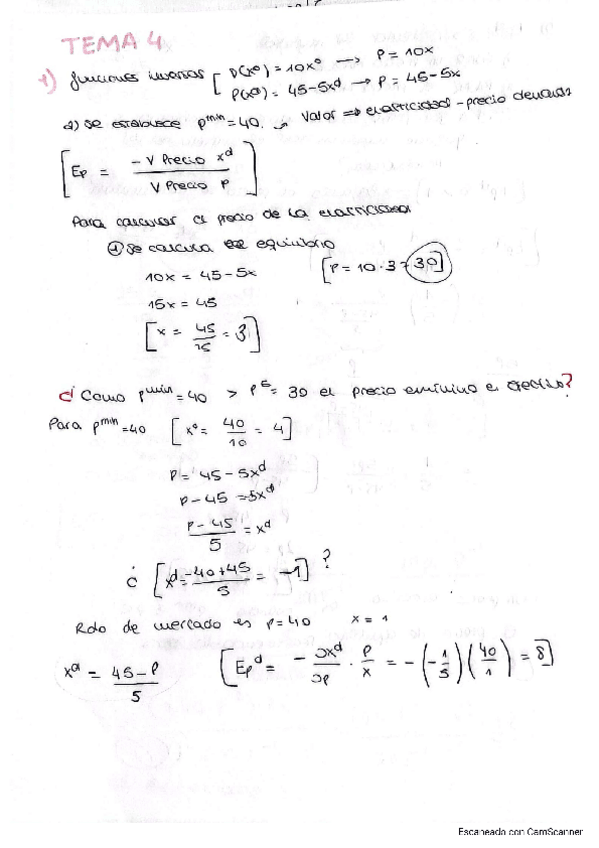 TEMA 4
1) funciones inversas [ P(x⁰) = 10x⁰ → P = 10x
P(xᵈ) = 45-5xᵈ → P = 45-5x
a) se establece pᵐⁱⁿ = 40. Valor ⇒ elasticidad - precio demanda
[ Ep = - V Precio xᵈ / V Precio P ]
Para calcular el precio de la elasticidad
① Se calcula el equilibrio
10x = 45-5x [P = 10·3 = 30]
15x = 45
[x = 45/15 = 3]
¿ Como pᵐⁱⁿ = 40 > pᴱ = 30 el precio es efectivo?
Para pᵐⁱⁿ = 40 [x⁰ = 40/10 = 4]
P = 45-5xᵈ
P-45 = 5xᵈ
P-45/5 = xᵈ
¿ [xᵈ = -40+45/5 = -1] ?
Rdo de mercado es P = 40 x = 1
xᵈ = 45-P/5 [Epᵈ = - ∂xᵈ/∂p · P/x = -(-1/5)(40/1) = 8]
Escaneado con CamScanner